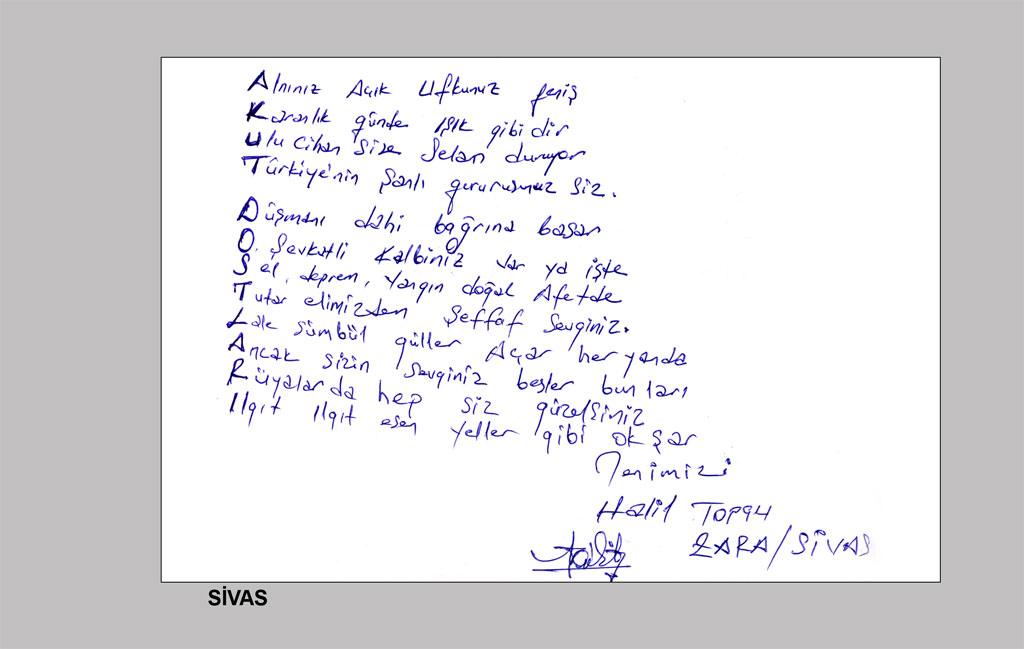 Alnınız Açık Ufkunuz geniş
Karanlık günde ışık gibidir
Ulu Cihan Size Selam duruyor
Türkiye'nin Şanlı gururusunuz Siz.
Düşmanı dahi bağrına basan
O. Şevkatli Kalbiniz Var ya işte
Sel, deprem, Yangın doğal Afetde
Tutar elimizden Şeffaf Sevginiz.
Lale Sümbül güller Açar her yanda
Ancak Sizin Sevginiz besler bunları
Rüyalarda hep Siz güzelsiniz
Ilgıt Ilgıt esen yeller gibi okşar
Tenimizi
Halil
ZARA/SİVAS
SİVAS